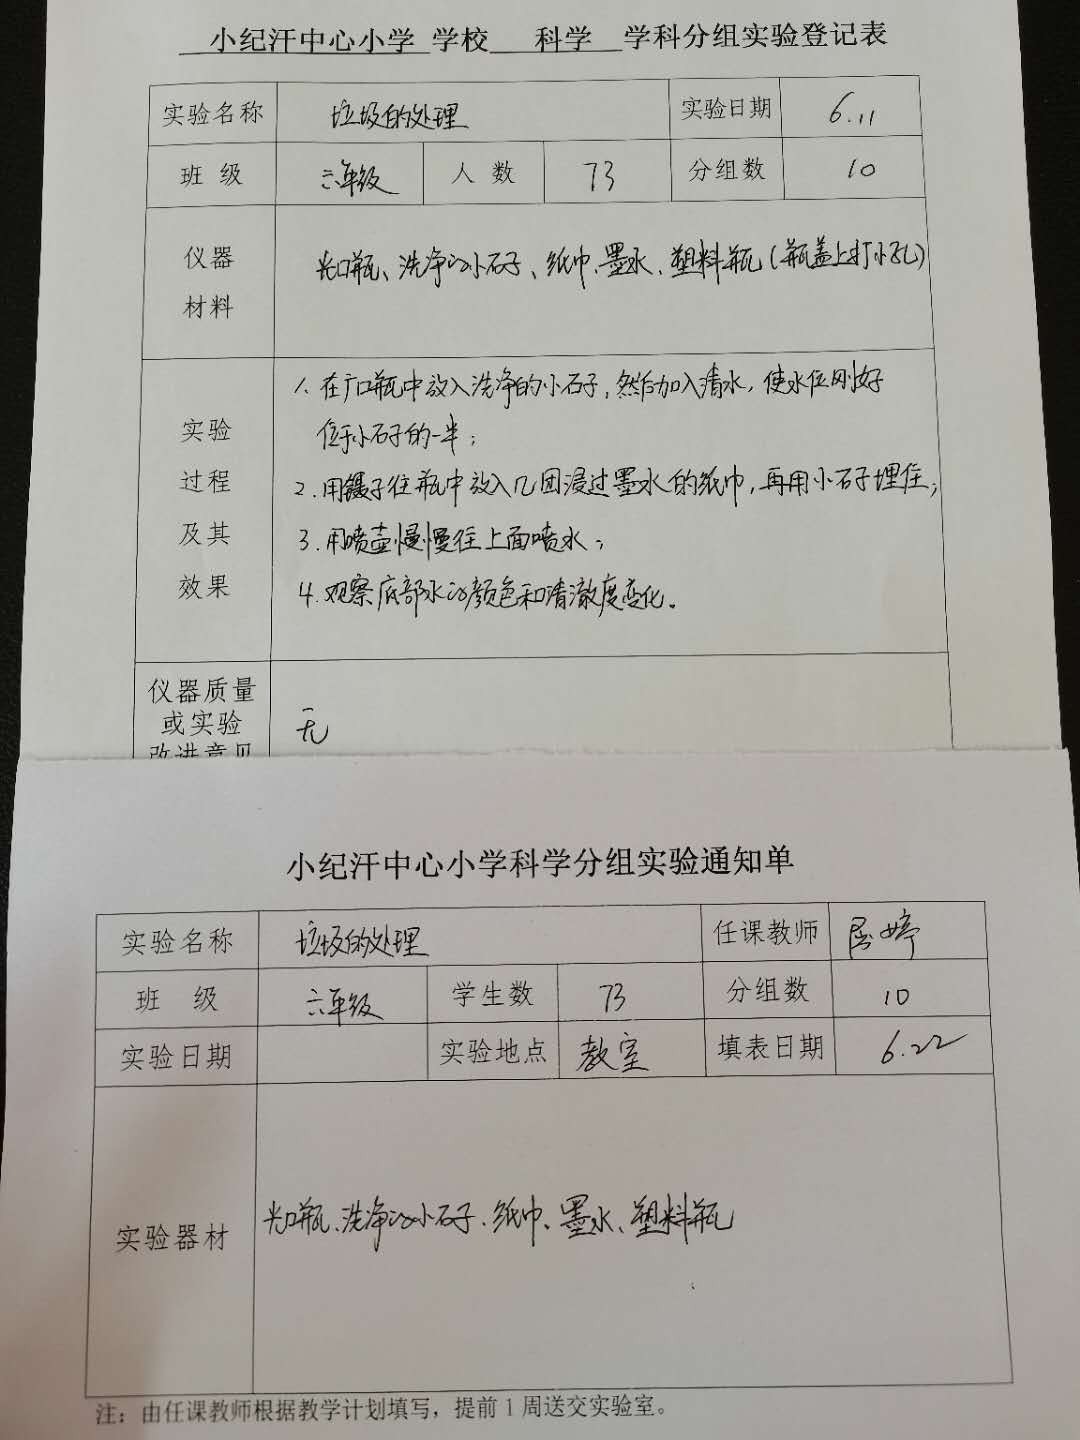 小纪汗中心小学 学校 科学 学科分组实验登记表
实验名称 垃圾的处理 实验日期 6.11
班 级 六年级 人 数 73 分组数 10
仪器
材料
光口瓶、洗净的小石子、纸巾、墨水、塑料瓶(瓶盖上打小孔)
实验
过程
及其
效果
1. 在广口瓶中放入洗净的小石子,然后加入清水,使水位刚好
位于小石子的一半;
2. 用镊子往瓶中放入几团浸过墨水的纸巾,再用小石子埋住;
3. 用喷壶慢慢往上面喷水;
4. 观察底部水的颜色和清澈度变化。
仪器质量
或实验
改进意见
无
小纪汗中心小学科学分组实验通知单
实验名称 垃圾的处理 任课教师 屈婷
班 级 六年级 学生数 73 分组数 10
实验日期 实验地点 教室 填表日期 6.22
实验器材 光口瓶、洗净的小石子、纸巾、墨水、塑料瓶
注：由任课教师根据教学计划填写，提前1周送交实验室。